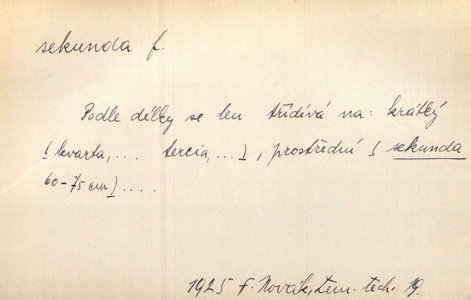 sekunda f.
Podle délky se len třídívá na: krátký
[kvarta,... tercia,...], prostřední [sekunda
60-75 cm]....
1925 F. Novák, Zem. tech. 19.